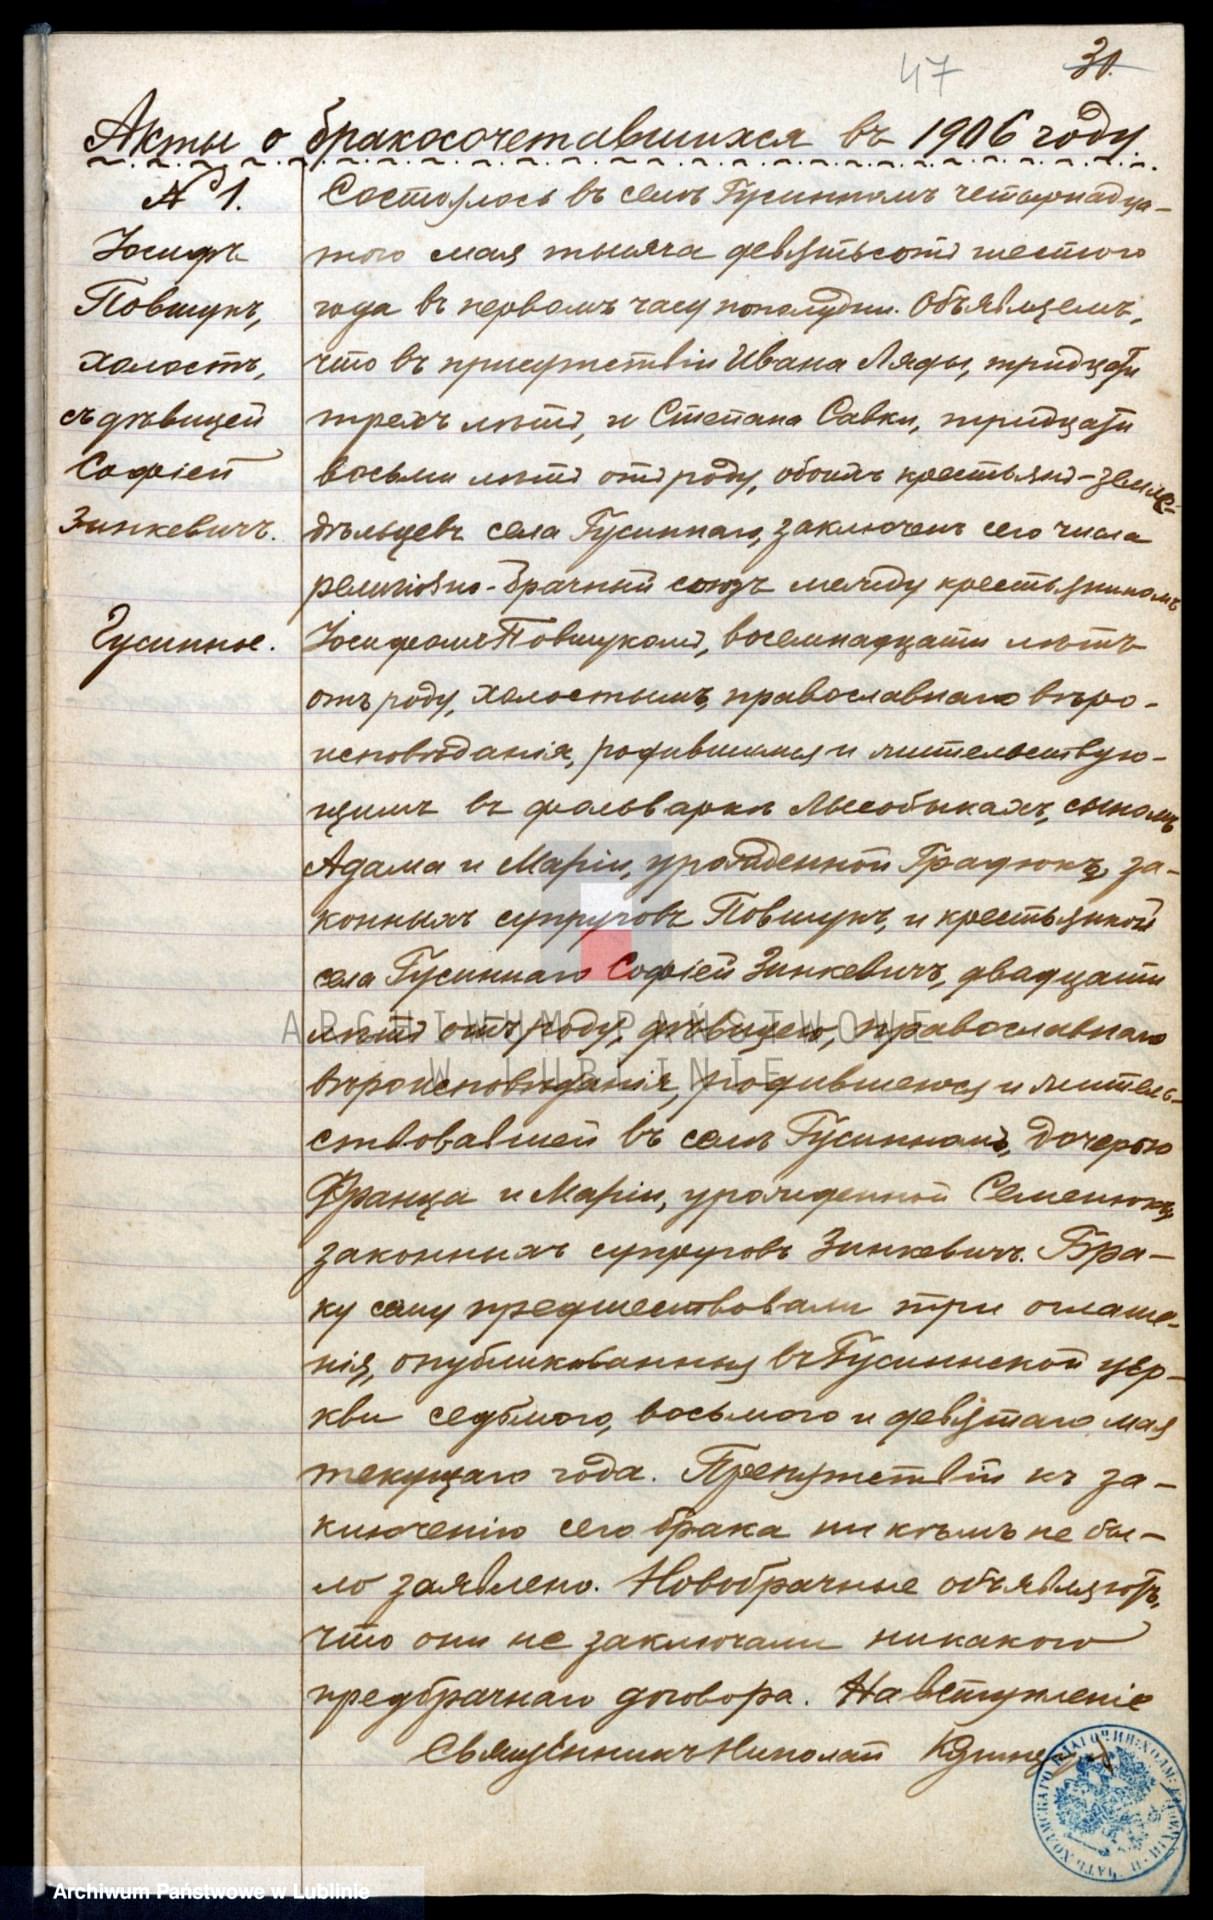 47
31.
Акты о бракосочетавшихся въ 1906 году.
№ 1.
Іосифъ
Повшукъ,
холостъ,
съ дѣвицей
Софіей
Зинкевичъ.
Гусинное.
Состоялось въ селѣ Гусинномъ четырнадца-
таго мая тысяча девятьсотъ шестого
года въ первомъ часу пополудни. Объявляемъ,
что въ присутствіи Ивана Ляды, тридцати
трехъ лѣтъ, и Степана Савки, тридцати
восьми лѣтъ отъ роду, обоихъ крестьянъ-земле-
дѣльцевъ села Гусиннаго, заключенъ сего числа
религіозно-брачный союзъ между крестьяниномъ
Іосифомъ Повшукомъ, восемнадцати лѣтъ
отъ роду, холостымъ, православнаго вѣро-
исповѣданія, родившимся и жительствую-
щимъ въ фольваркѣ Мысобыкахъ, сыномъ
Адама и Маріи, урожденной Градюкъ, за-
конныхъ супруговъ Повшукъ, и крестьянкой
села Гусиннаго Софіей Зинкевичъ, двадцати
лѣтъ отъ роду, дѣвицею, православнаго
вѣроисповѣданія, родившеюся и житель-
ствовавшей въ селѣ Гусинномъ, дочерью
Франца и Маріи, урожденной Семенюкъ,
законныхъ супруговъ Зинкевичъ. Бра-
ку сему предшествовали три оглаше-
нія, опубликованныя въ Гусиннской цер-
кви седьмого, восьмого и девятаго мая
текущаго года. Препятствій къ за-
ключенію сего брака ни кѣмъ не бы-
ло заявлено. Новобрачные объявляютъ,
что они не заключали никакого
предбрачнаго договора. На вступленіе
Священникъ Николай
ARCHIWUM PAŃSTWOWE
W LUBLINIE
Archiwum Państwowe w Lublinie